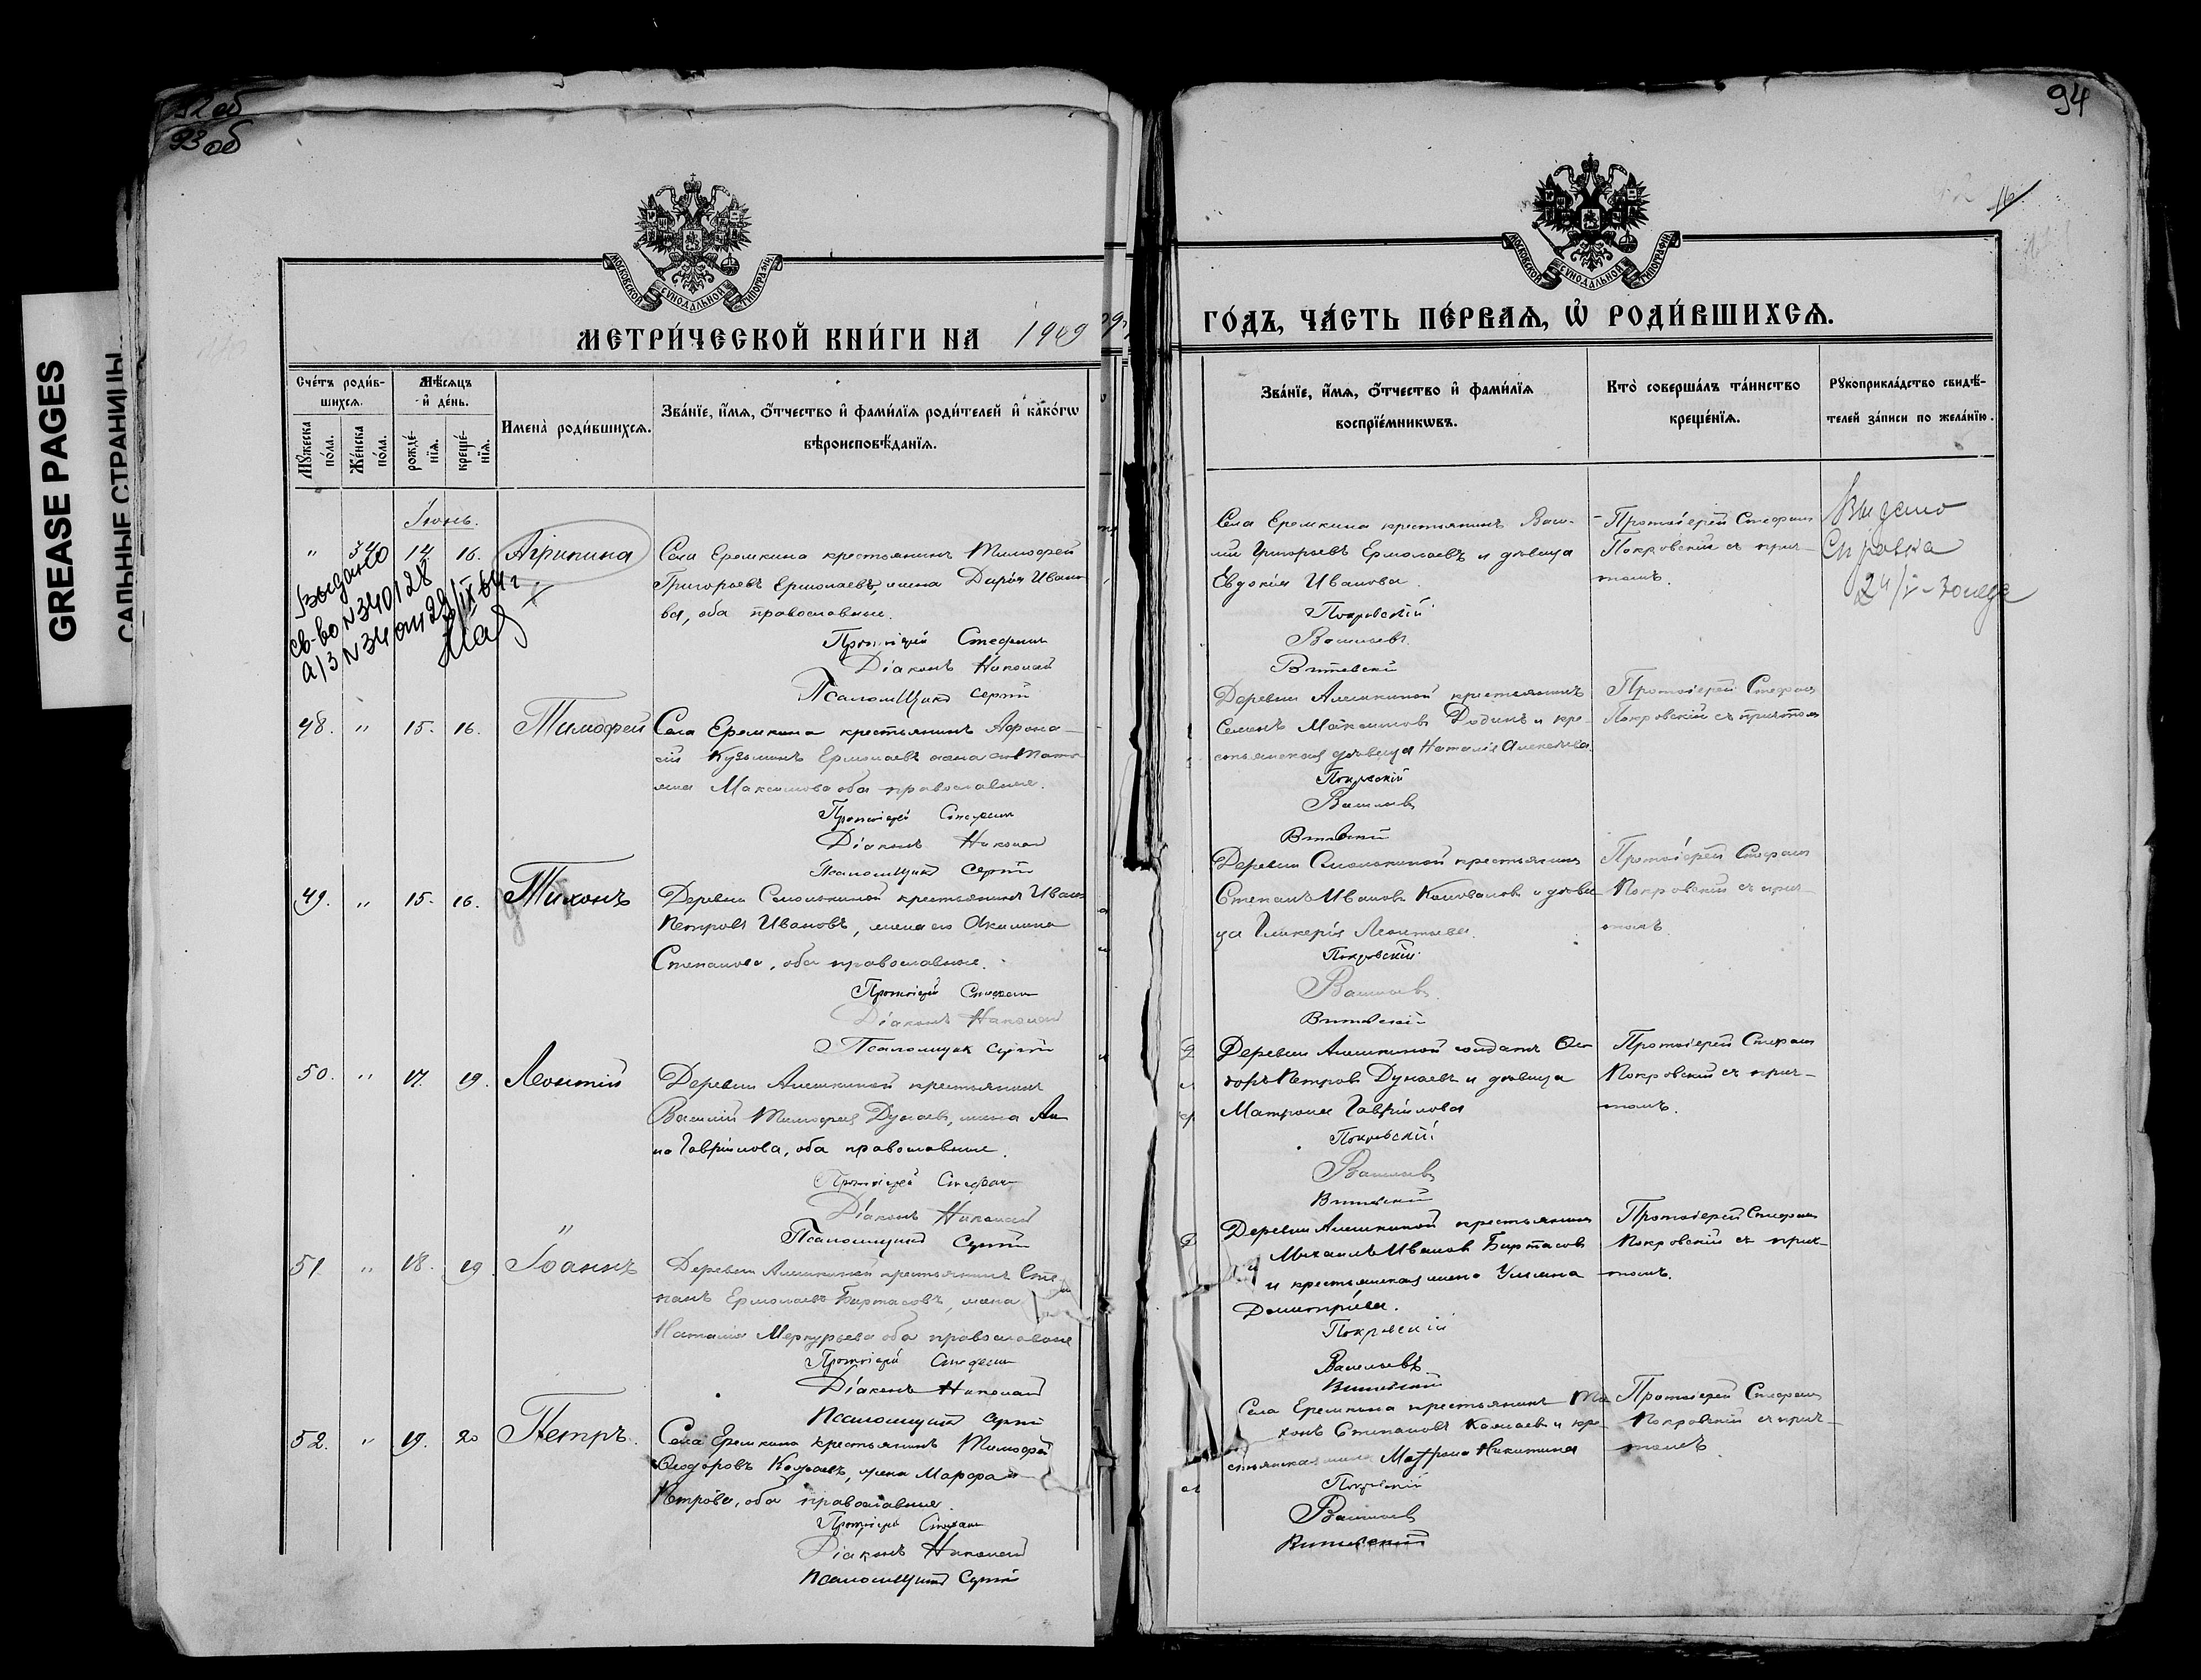 92 об
93 об
94
16
GREASE PAGES
САЛЬНЫЕ СТРАНИЦЫ
МОСКОВСКОЙ СѴНОДАЛЬНОЙ ТИПОГРАФІИ
МОСКОВСКОЙ СѴНОДАЛЬНОЙ ТИПОГРАФІИ
МЕТРИ́ЧЕСКОЙ КНИ́ГИ НА 1909
ГО́ДЪ, ЧА́СТЬ ПЕ́РВАѦ, Ѡ҆ РОДИ́ВШИХСѦ.
Сче́тъ роди́в-
шихсѧ.
Мѣ́сѧцъ
и҆ де́нь.
Мꙋ́жеска
по́ла.
Же́нска
по́ла.
рожде́-
нїѧ.
креще́-
нїѧ.
Имена̀ роди́вшихсѧ.
Зва́нїе, и҆́мѧ, ѻ҆́тчество и҆ фами́лїѧ роди́телей и҆ како́гѡ
вѣроисповѣ́данїѧ.
Зва́нїе, и҆́мѧ, ѻ҆́тчество и҆ фами́лїѧ
воспрїе́мникѡвъ.
Кто̀ соверша́лъ та́инство
креще́нїѧ.
Рꙋкоприкла́дство свидѣ́-
телей за́писи по жела́нїю.
Іюнь.
" 14 16. Агрипина
Села Еремкина крестьянинъ Тимофей
Григорьевъ Ермолаевъ, жена Дарія Ивано
ва, оба православные.
Протоіерей Стефанъ
Діаконъ Николай
Псаломщикъ Сергій
Выдано
св-во N 340128
а/з N 34 от 29/IX 64 г
Села Еремкина крестьянинъ Васи-
лій Григорьевъ Ермолаевъ и дѣвица
Евдокія Иванова.
Покровскій
Васильевъ
Витевскій
Протоіерей Стефанъ
Покровскій съ прич-
томъ.
Выдано
Справка
48. " 15. 16. Тимофей
Села Еремкина крестьянинъ Афана-
сій Кузьминъ Ермолаевъ жена его Тать-
яна Максимова оба православные.
Протоіерей Стефанъ
Діаконъ Николай
Псаломщикъ Сергій
Деревни Алешкиной крестьянинъ
Семенъ Максимовъ Дудинъ и кре-
стьянская дѣвица Наталія Алексѣева.
Покровскій
Васильевъ
Витевскій
Протоіерей Стефанъ
Покровскій съ причтомъ
49. " 15. 16. Тихонъ
Деревни Смолькиной крестьянинъ Иванъ
Петровъ Ивановъ, жена его Акилина
Степанова, оба православные.
Протоіерей Стефанъ
Діаконъ Николай
Псаломщикъ Сергій
Деревни Смолькиной крестьянинъ
Степанъ Ивановъ и дѣви
ца Гликерія Леонтьева.
Покровскій
Васильевъ
Витевскій
Протоіерей Стефанъ
Покровскій съ прич-
томъ.
50. " 17. 19. Леонтій
Деревни Алешкиной крестьянинъ
Василій Тимофеевъ Дунаевъ, жена Ан
на Гавріилова, оба православные.
Протоіерей Стефанъ
Діаконъ Николай
Псаломщикъ Сергій
Деревни Алешкиной солдатъ Ѳео
доръ Петровъ Дунаевъ и дѣвица
Матрона Гавріилова
Покровскій
Васильевъ
Витевскій
Протоіерей Стефанъ
Покровскій съ прич-
томъ.
51 " 18. 19. Іоаннъ
Деревни Алешкиной крестьянинъ Сте
панъ Ермолаевъ Бартасовъ, жена
Наталія Меркурьева оба православные
Протоіерей Стефанъ
Діаконъ Николай
Псаломщикъ Сергій
Деревни Алешкиной крестьянинъ
Михаилъ Ивановъ Бартасовъ
и крестьянская жена Ульяна
Димитріева.
Покровскій
Васильевъ
Витевскій
Протоіерей Стефанъ
Покровскій съ прич-
томъ.
52. " 19. 20 Петръ.
Села Еремкина крестьянинъ Тимофей
Ѳеодоровъ жена Марфа
Петрова, оба православные.
Протоіерей Стефанъ
Діаконъ Николай
Псаломщикъ Сергій
Села Еремкина крестьянинъ Ти
хонъ Степановъ и кре-
стьянская жена Матрона Никитина
Покровскій
Васильевъ
Витевскій
Протоіерей Стефанъ
Покровскій съ прич-
томъ